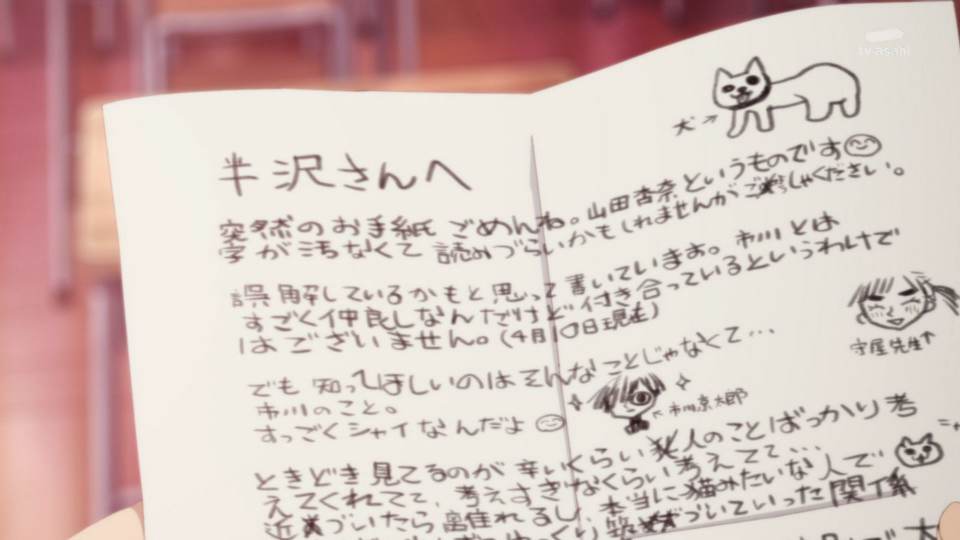 tv asahi
犬→
半沢さんへ
突然のお手紙ごめんね。山田杏奈というものです
字が汚なくて読みづらいかもしれませんがご しゃください。
誤解しているかもと思って書いています。市川とは
すごく仲良しなんだけど付き合っているというわけで
はございません。(4月10日現在)
守屋先生↑
でも知ってほしいのはそんなことじゃなくて…
市川のこと。
←市川京太郎
すっごくシャイなんだよ
ときどき見てるのが辛いくらい 人のことばっかり考
えてくれてて、考えすぎなくらい考えてて…
近 づいたら離れるし、本当に猫みたいな人で
築 づいていった関係